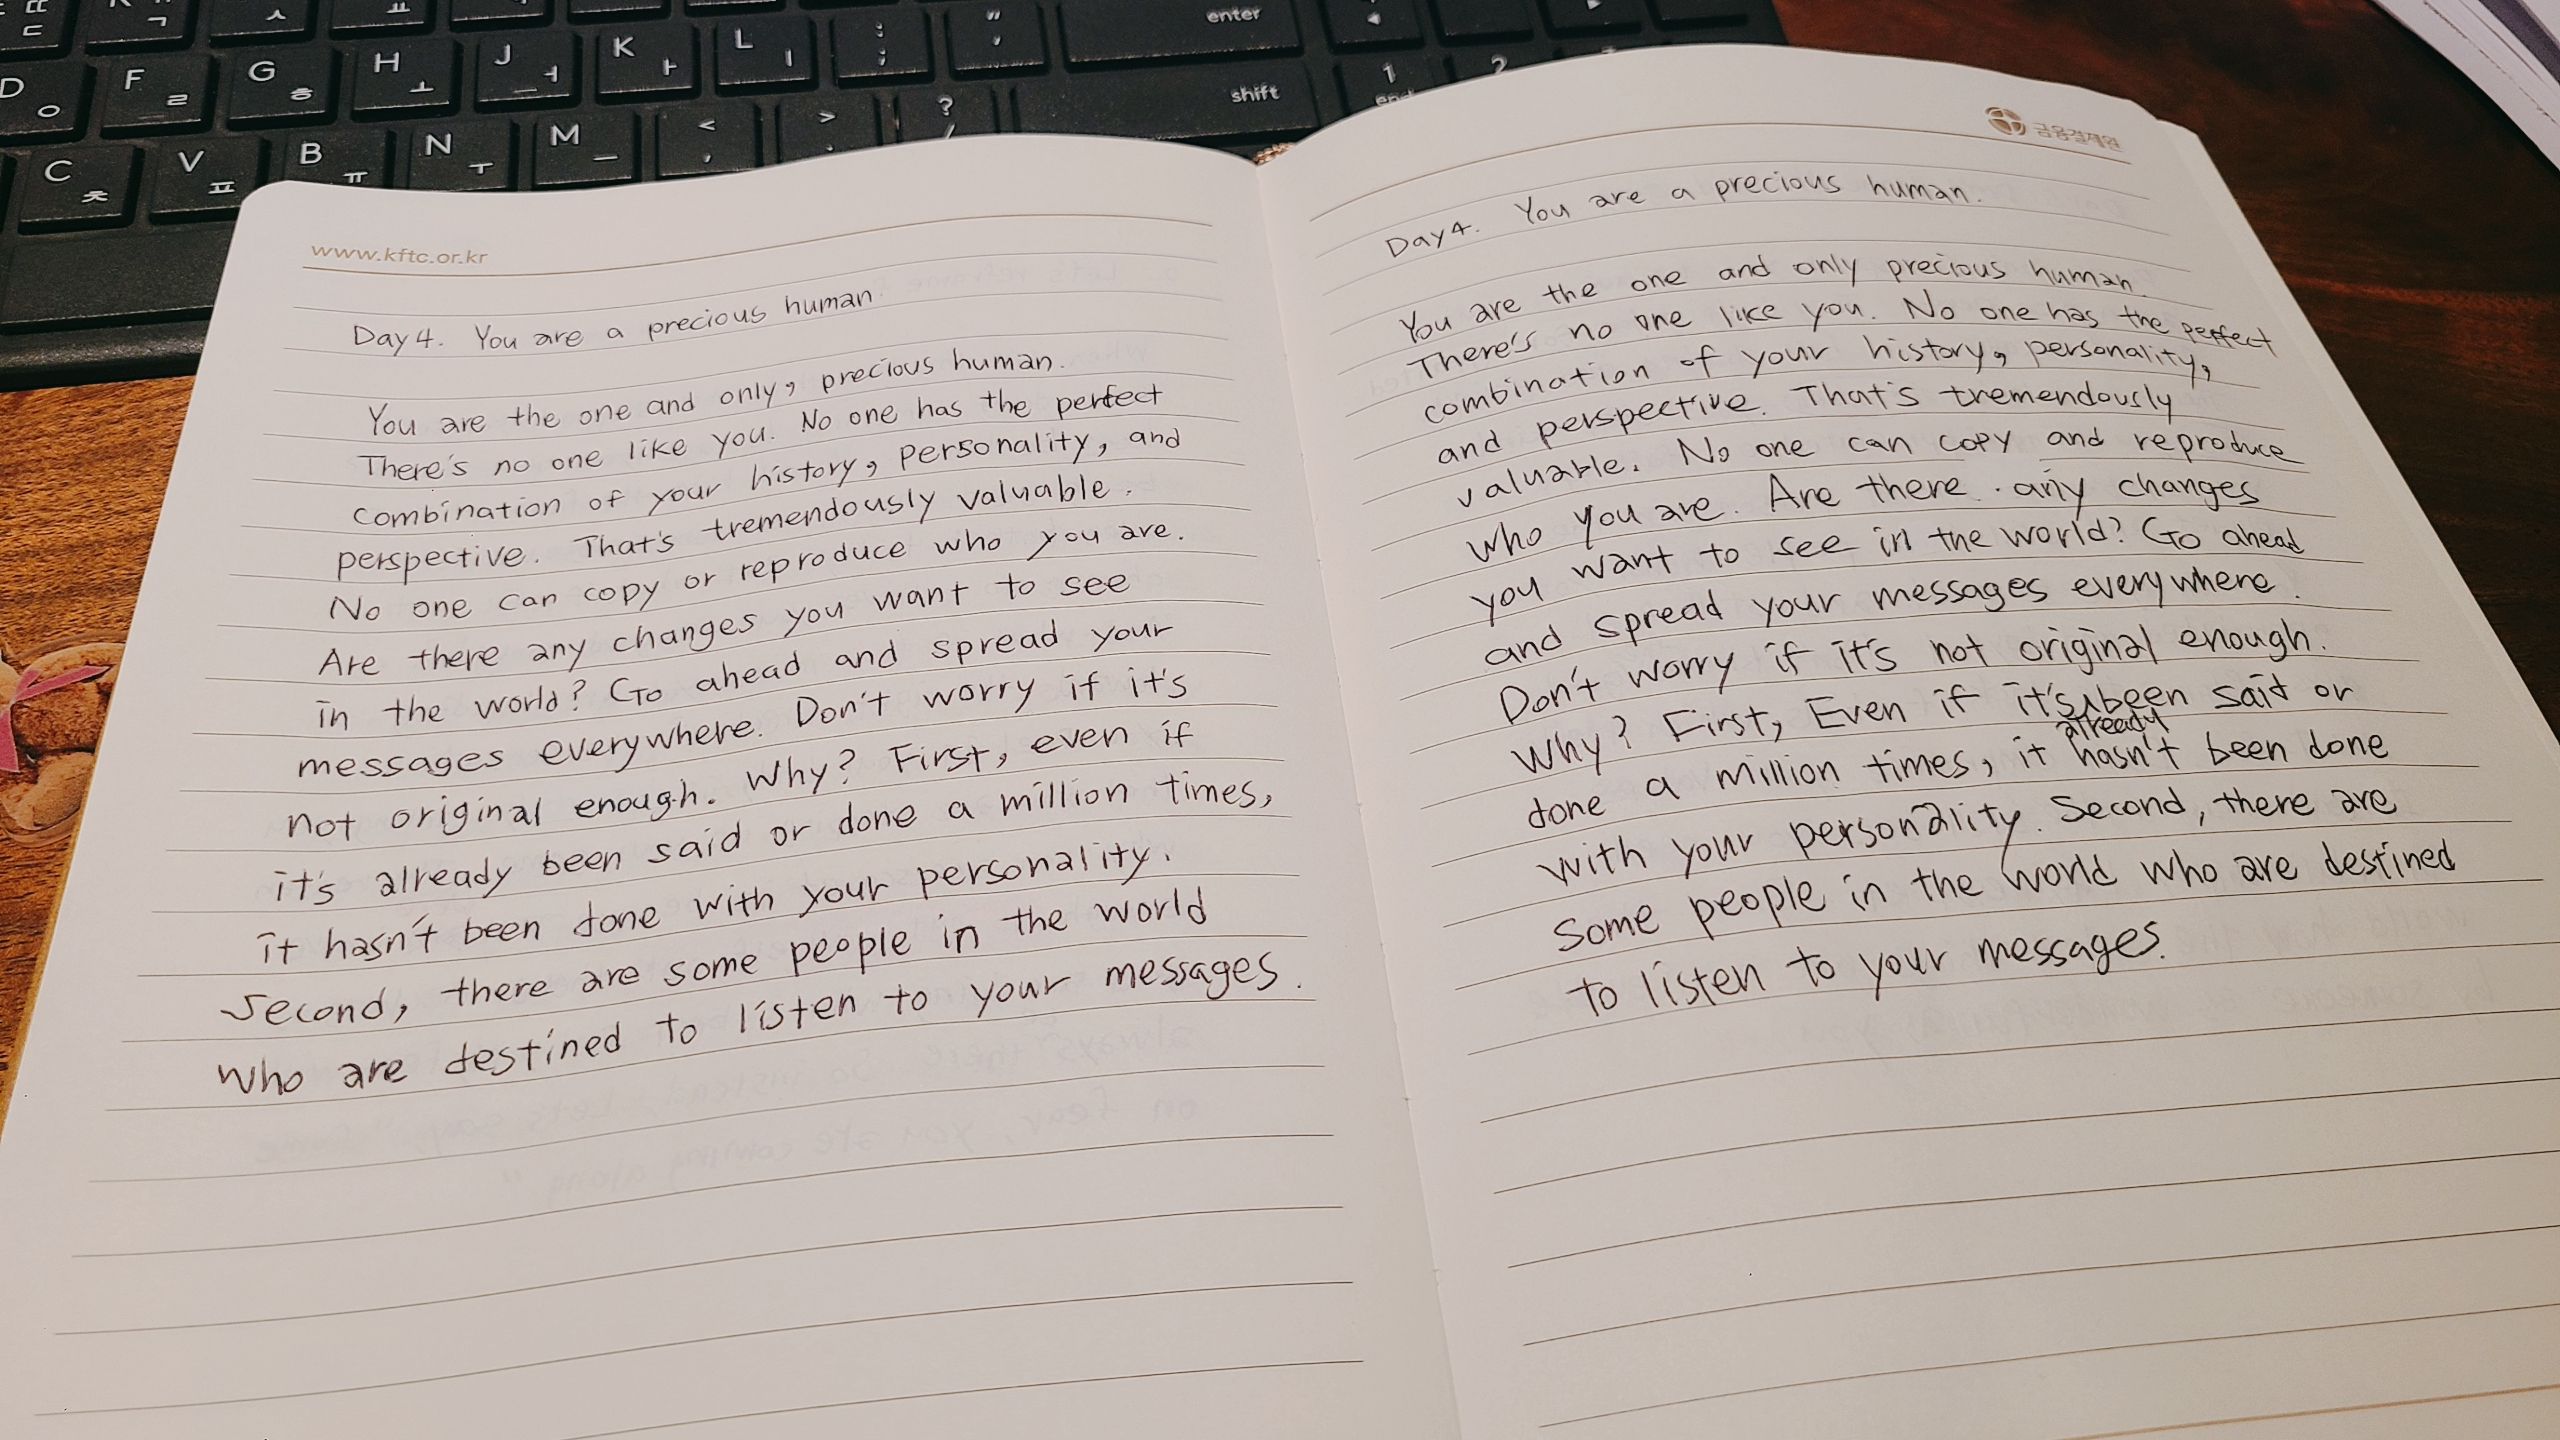 enter
shift
D
F
G
H
J
K
L
C
V
B
N
M
www.kftc.or.kr
Day 4. You are a precious human
You are the one and only, precious human.
There's no one like you. No one has the perfect
combination of your history, personality, and
perspective. That's tremendously valuable.
No one can copy or reproduce who you are.
Are there any changes you want to see
in the world? Go ahead and spread your
messages everywhere. Don't worry if it's
not original enough. Why? First, even if
it's already been said or done a million times,
it hasn't been done with your personality.
Second, there are some people in the world
who are destined to listen to your messages.
금융결제원
Day 4. You are a precious human.
You are the one and only precious human.
There's no one like you. No one has the perfect
combination of your history, personality,
and perspective. That's tremendously
valuable. No one can copy and reproduce
who you are. Are there any changes
you want to see in the world? Go ahead
and spread your messages everywhere.
Don't worry if it's not original enough.
Why? First, Even if it's already been said or
done a million times, it hasn't been done
with your personality. Second, there are
some people in the world who are destined
to listen to your messages.